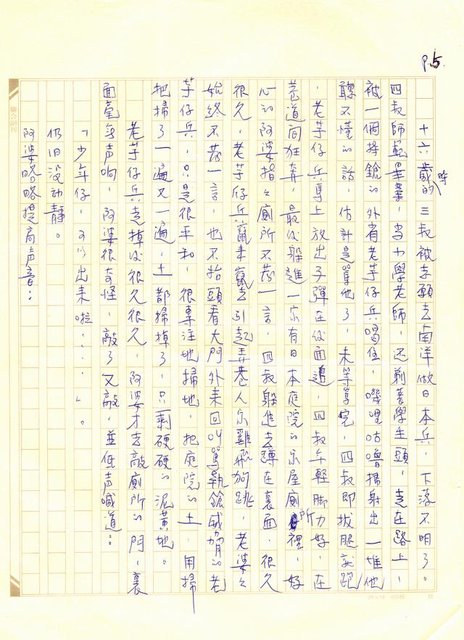 P5.
十六歲時的三叔被志願去南洋做日本兵，下落不明了。
四叔師範畢業，當小學老師，還剃著學生頭，走在路上，
被一個持鎗的外省老芋仔兵喝住，嘰哩咕嚕掃射出一堆他
聽不懂的話，估計是罵他了，未等罵完，四叔即拔腿就跑
，老芋仔兵馬上放出子彈在後面追，四叔年輕脚力好，在
巷道間狂奔，最後躲進一家有日本庭院的家屋廁所裡，好
心的阿婆指指廁所不發一言，四叔躲進去蹲在裏面，很久
很久，老芋仔兵竄來竄去引起弄巷人家雞飛狗跳，老婆婆
始終不發一言，也不抬頭看大門外來回叫罵執鎗威脅的老
芋仔兵，只是很平和，很專注地掃地，把庭院的土，用掃
把掃了一遍又一遍，土都掃掉了，只剩硬硬的泥黃地。
老芋仔兵走掉後很久很久，阿婆才去敲廁所的門，裏
面毫無声响，阿婆很奇怪，敲了又敲，並低声喊道：
「少年仔，可以出來啦……。」
仍旧没動靜。
阿婆略略提高声音：